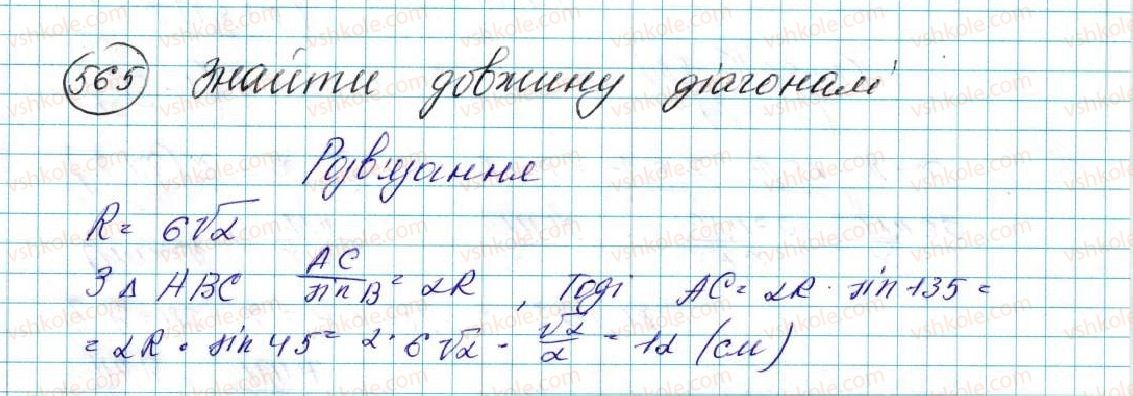 565 Знайти довжину діагоналі
Розв'язання
R = 6√2
З Δ ABC AC/sin B = 2R, Тоді AC = 2R · sin 135 =
= 2R · sin 45 = 2 · 6√2 · √2/2 = 12 (см)